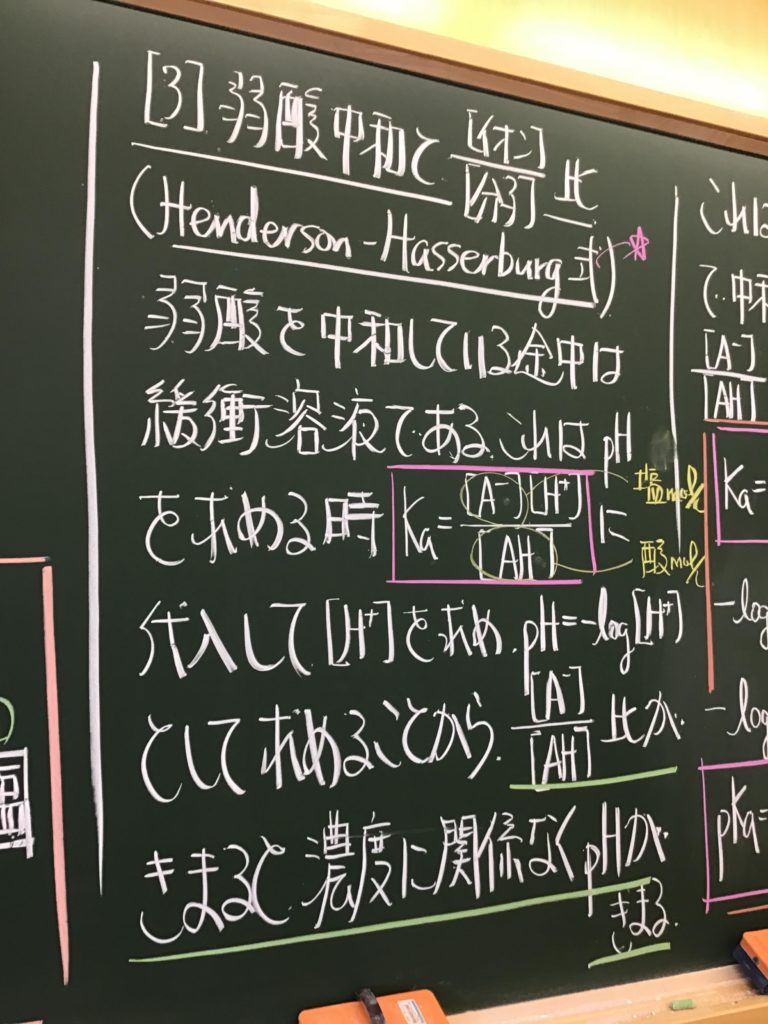 [3] 弱酸中和と [イオン]/[分子] 比
(Henderson-Hasserburg式)
弱酸を中和している途中は
緩衝溶液である.これは pH
を求める時 Ka=[A⁻][H⁺]/[AH] に
塩mol/
酸mol/
代入して[H⁺]を求め.pH=-log[H⁺]
として求めることから.[A⁻]/[AH]比が.
きまると濃度に関係なくpHが
きまる.
これは
で.中和
[A⁻]/[AH]
Ka=
-log
-log
pKa=
塩